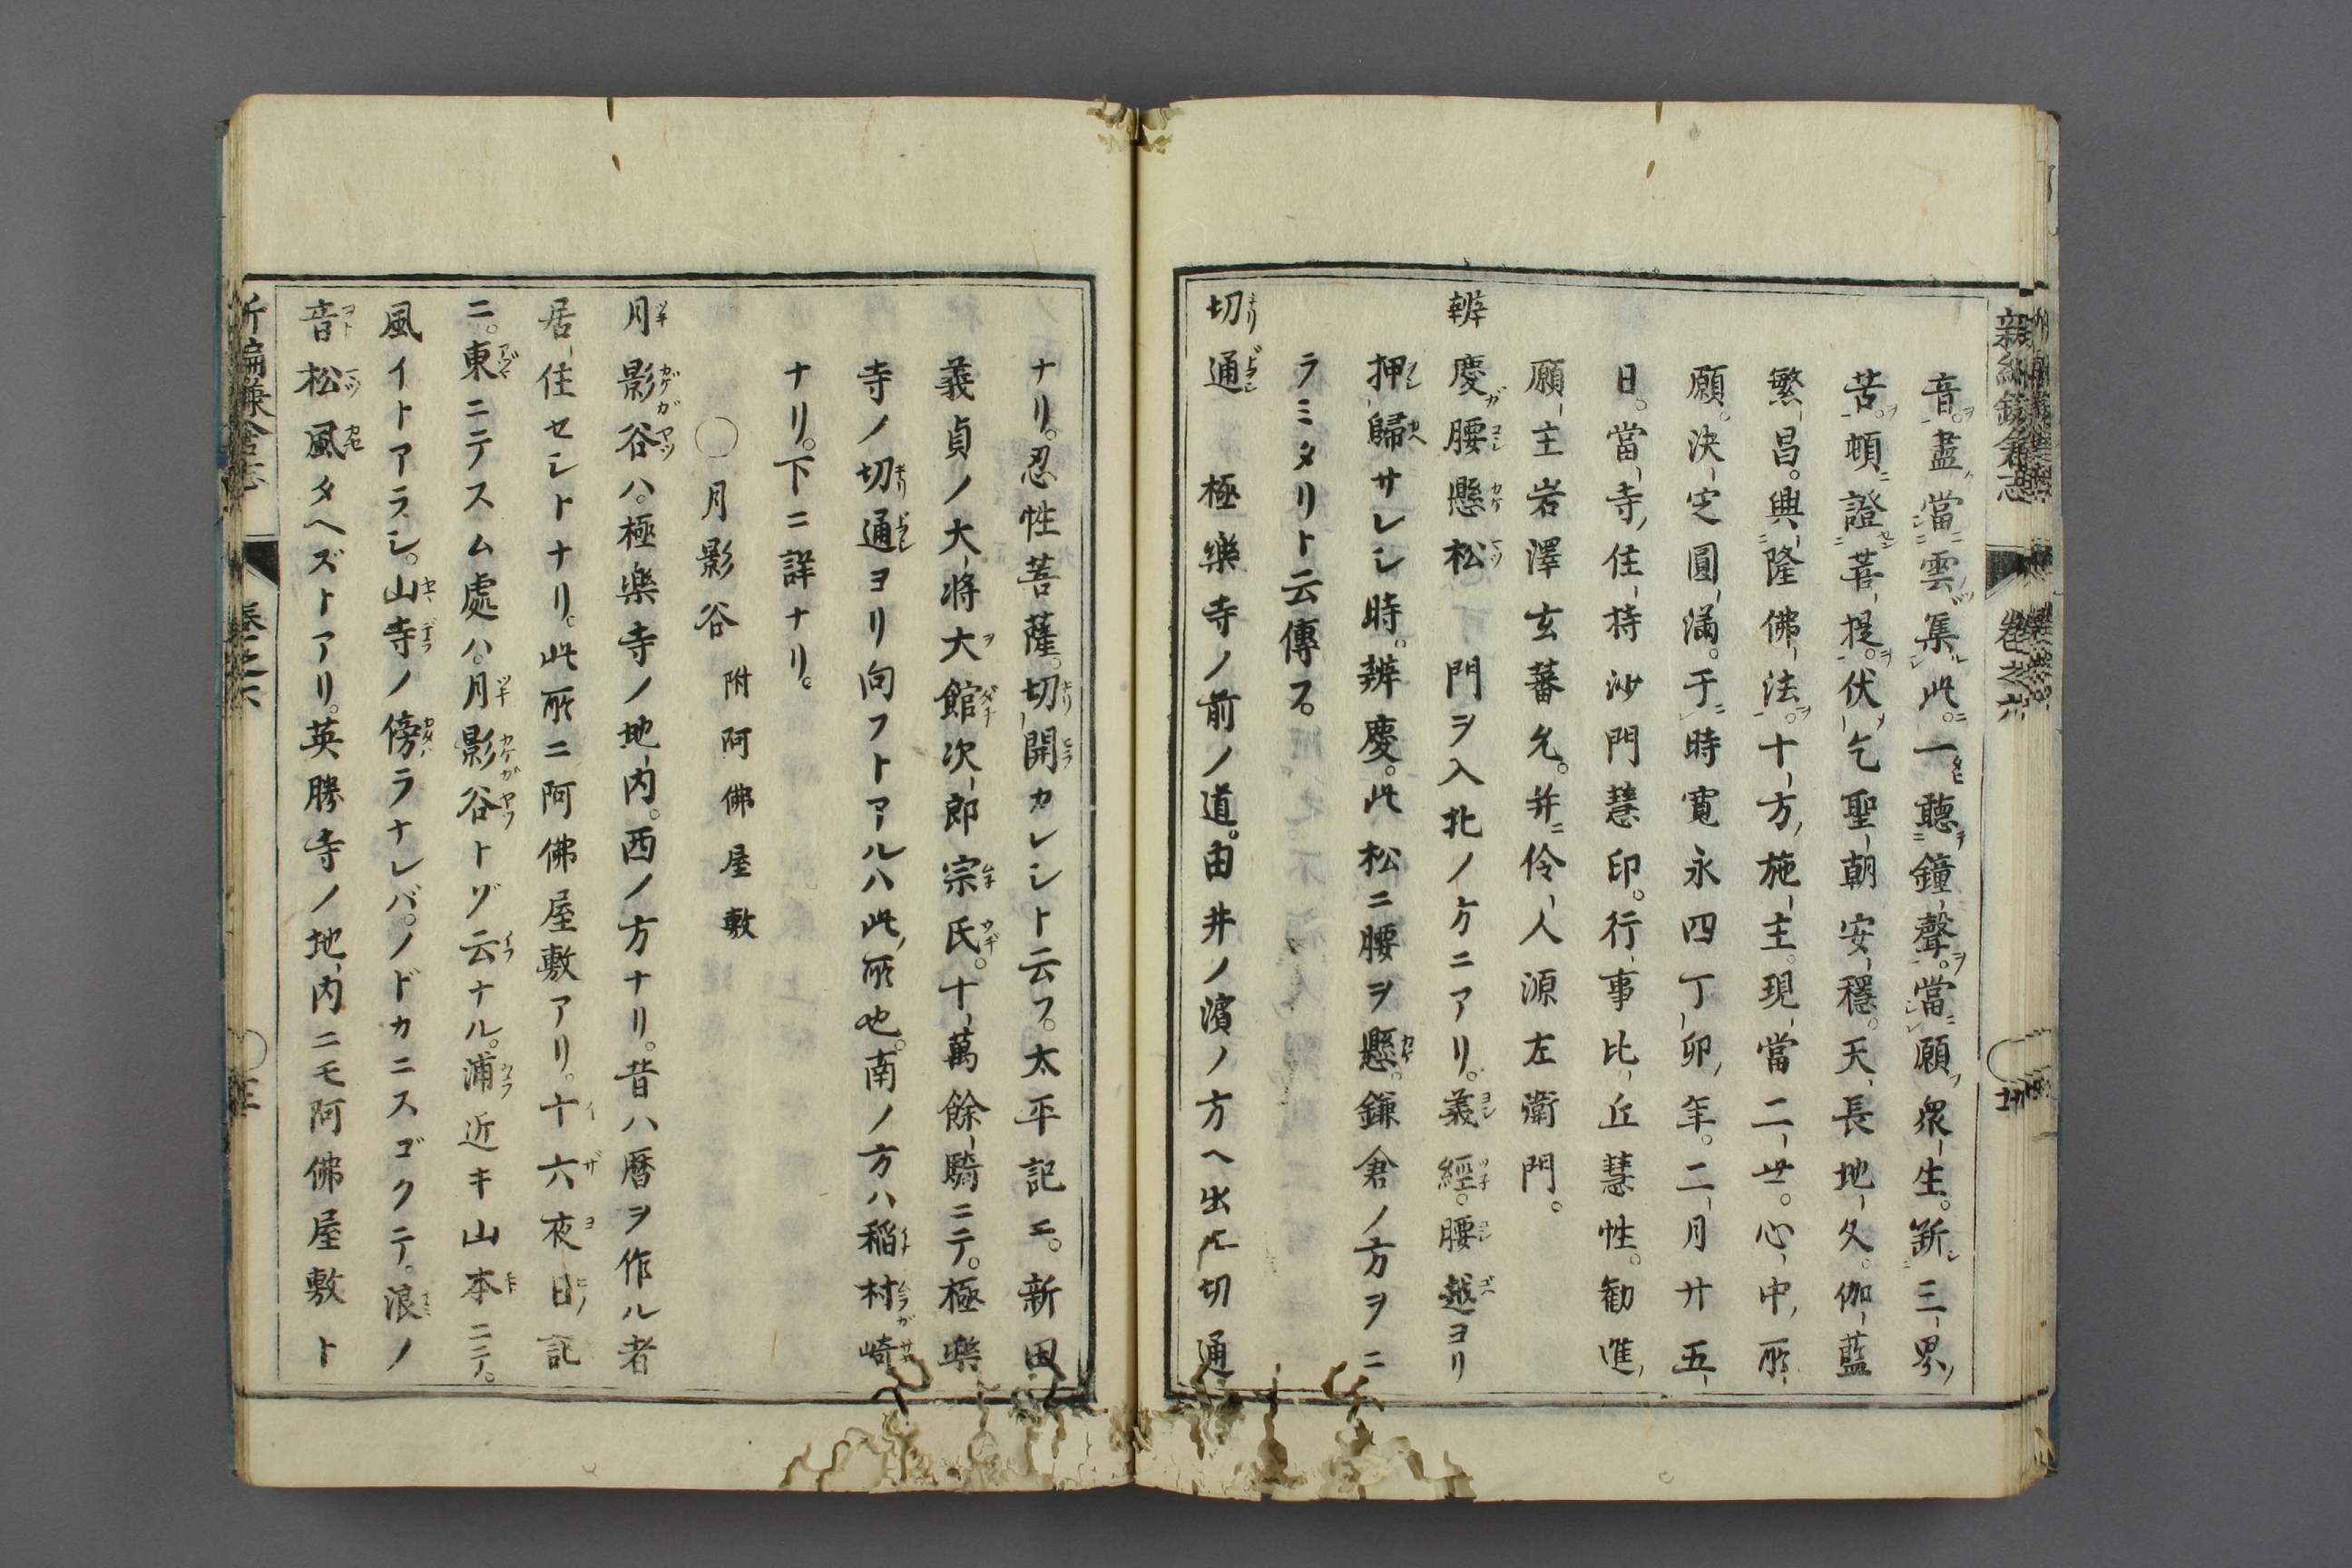 音。盡當雲集此。一聽鐘聲。當願衆生。斷三界
苦。頓證菩提。伏乞聖朝安穩。天長地久。伽藍
繁昌。興隆佛法。十方施主。現當二世。心中所
願。決定圓滿。于時寛永四丁卯年。二月廿五
日。當寺住持沙門慧印。行事比丘慧性。勧進
願主岩澤玄蕃允。并伶人源左衛門。
辨慶腰懸松 門ヲ入北ノケニアリ。義經。腰越ヨリ
押歸サレシ時。辨慶。此松ニ腰ヲ懸。鎌倉ノ方ヲニ
ラミタリト云傳フ。
切通 極樂寺ノ前ノ道。由井ノ濱ノ方ヘ出ル切通
ナリ。忍性菩薩。切開カレシト云フ。太平記ニ。新田
義貞ノ大將大館次郎宗氏。十萬餘騎ニテ。極樂
寺ノ切通ヨリ向フトアルハ此所也。南ノ方ハ稲村崎
ナリ。下ニ詳ナリ。
○月影谷 附阿佛屋敷
月影谷ハ。極楽寺ノ地内。西ノ方ナリ。昔ハ暦ヲ作ル者
居住セシトナリ。此所ニ阿佛屋敷アリ。十六夜日記
ニ。東ニテスム處ハ。月影谷トゾ云ナル。浦近キ山本ニテ。
風イトアラシ。山寺ノ傍ラナレバ。ノドカニスゴクテ。浪ノ
音松風タヘズトアリ。英勝寺ノ地内ニモ阿佛屋敷ト